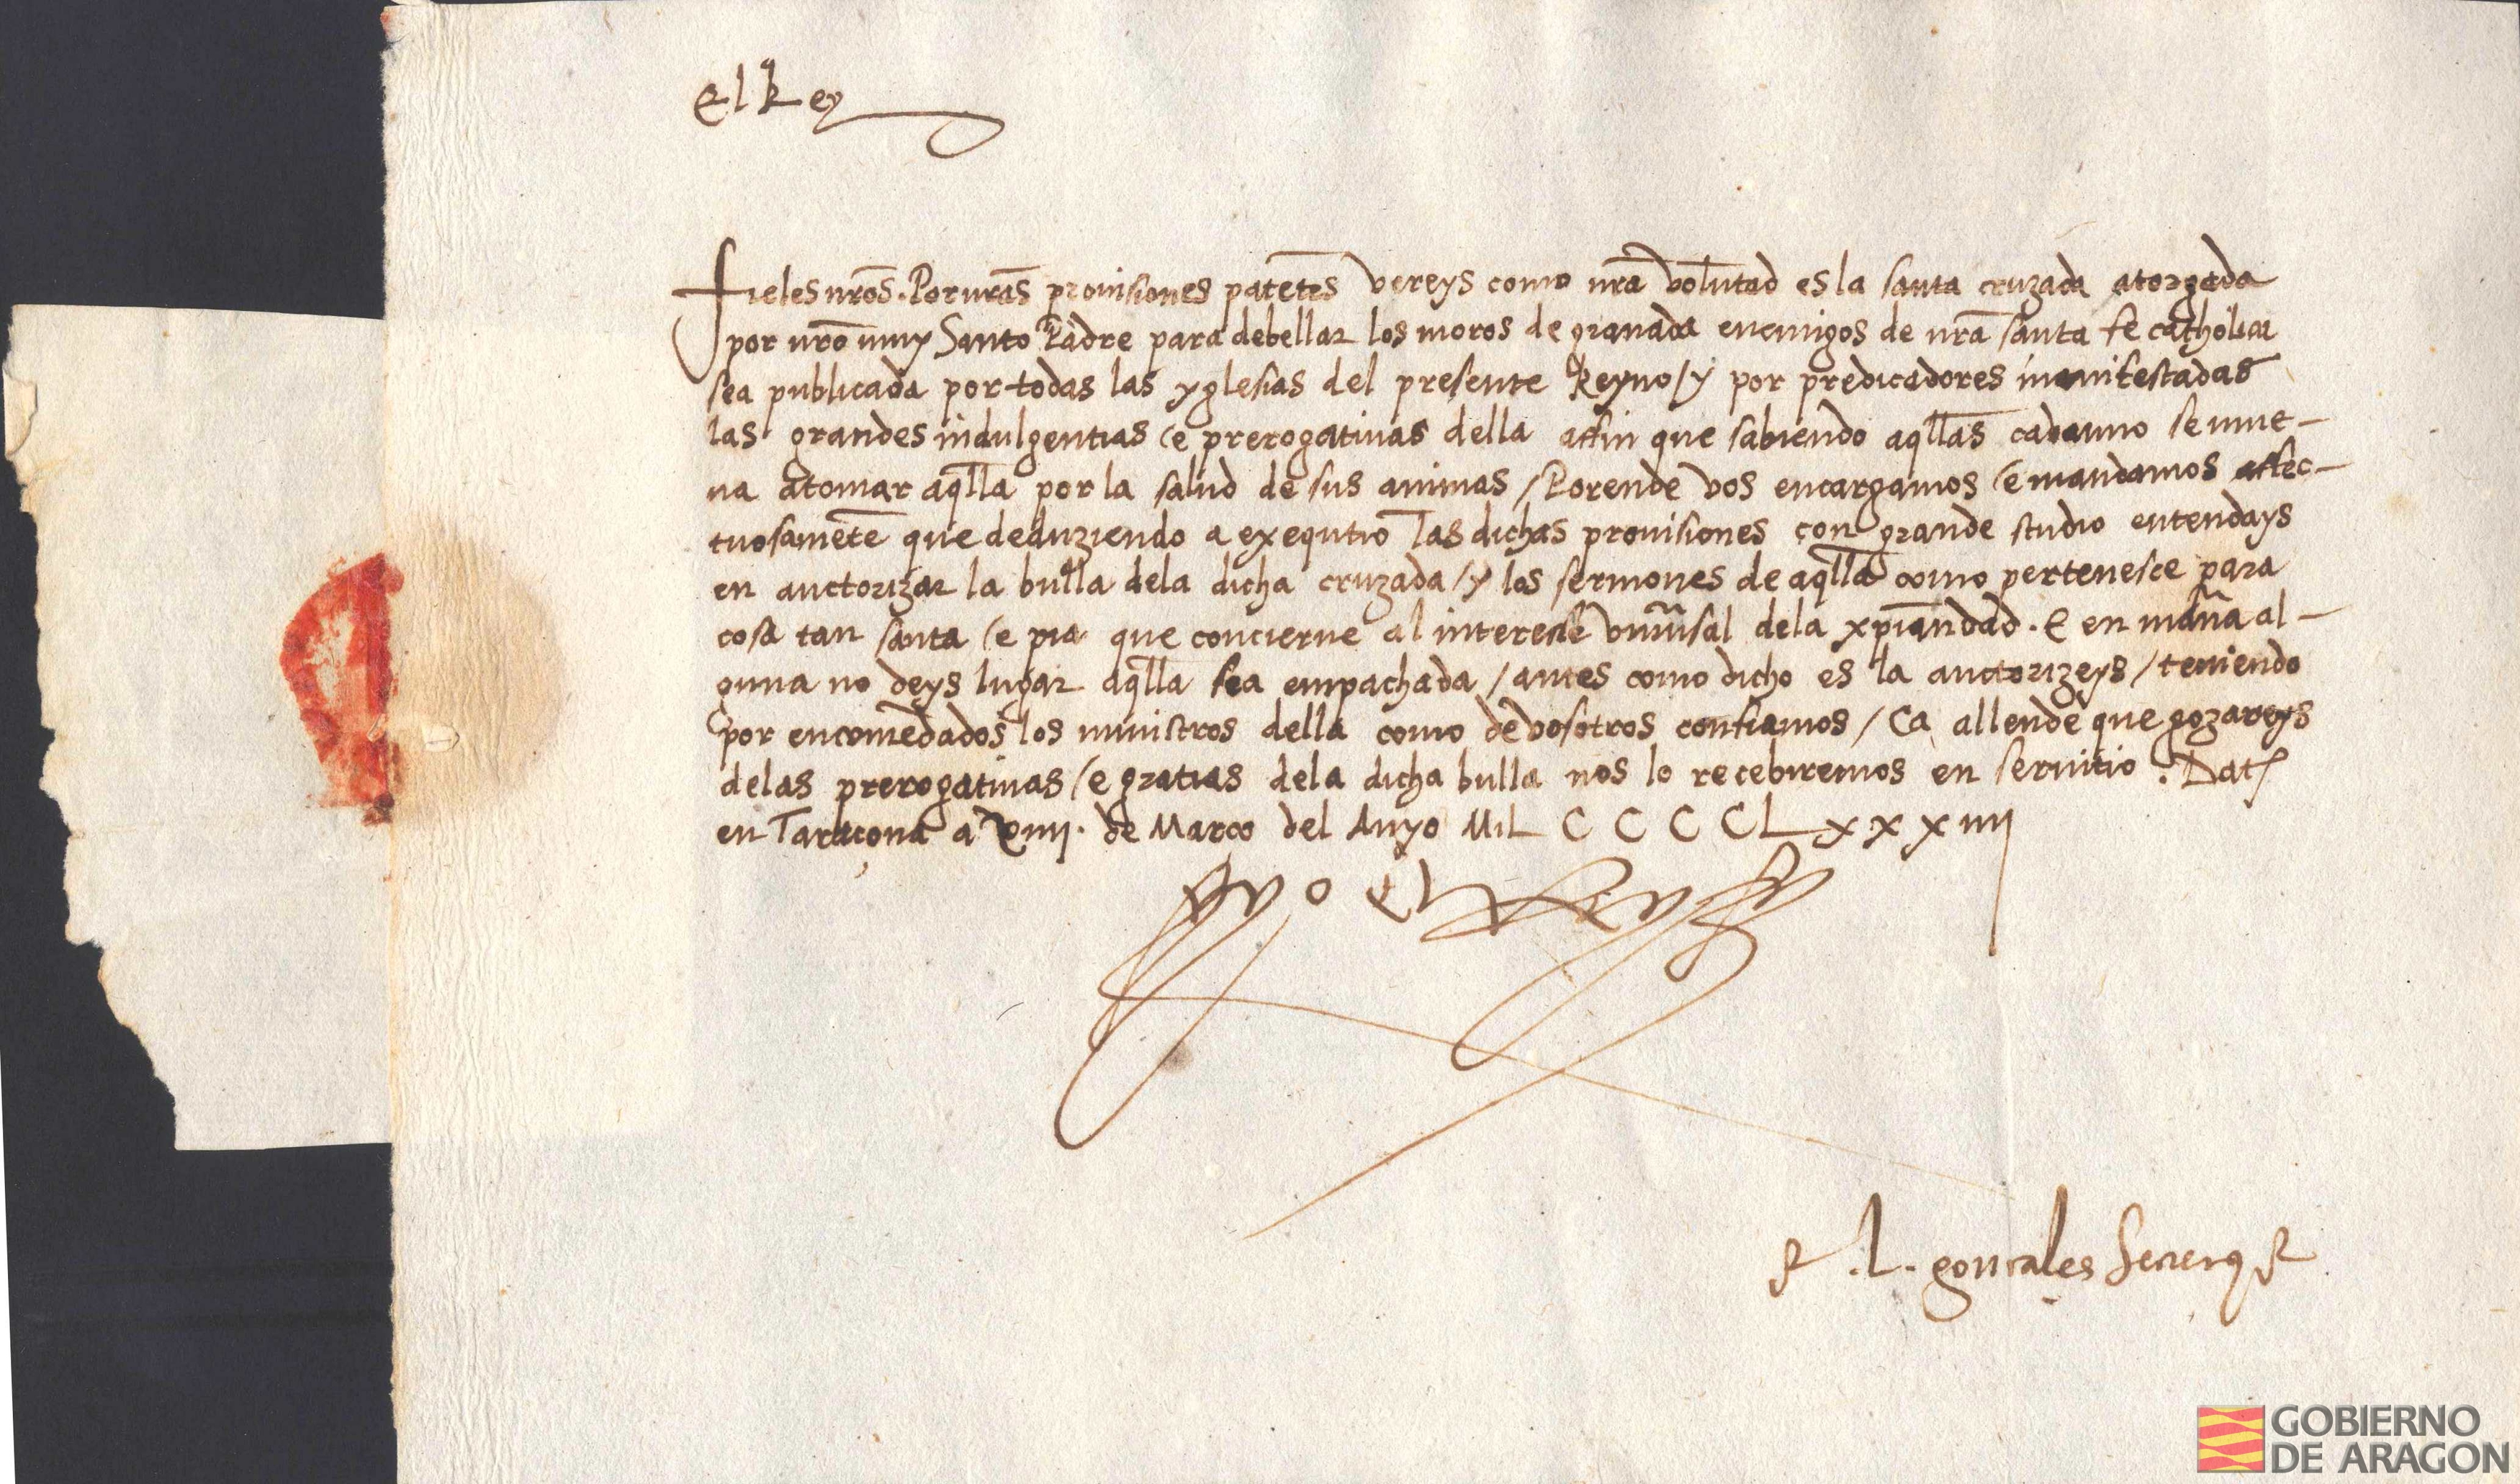 El Rey
fieles nrōs. Por nrās prouisiones patētes vereys como nrā volūtad es la santa cruzada atorgada
por nrō muy Santo Padre para debellar los moros de granada enemigos de nrā santa fe catholica
sea publicada por todas las yglesias del presente Reyno / y por predicadores manifestadas
las grandes indulgentias e prerogatiuas della affin que sabiendo aq̄llas cadauno se mue-
ua atomar aq̄lla por la salud de sus animas / Porende vos encargamos e mandamos affec-
tuosamēte que deduziendo a exequtiō las dichas prouisiones con grande studio entendays
en auctorizar la bulla dela dicha cruzada / y los sermones de aq̄lla como pertenesce para
cosa tan santa e pia que concierne al interesse vniūsal dela xpiandad. E en mañа al-
guna no deys lugar aq̄lla sea empachada / antes como dicho es la auctorizeys / teniendo
por encomēdados los ministros della como de vosotros confiamos / Ca allende que gozareys
delas prerogatiuas e gratias dela dicha bulla nos lo recebiremos en seruitio. Dat
en Taraçona a xiiij. de Março del Anyo Mil C C C C L x x x iiij
yo el Rey
L. gonçales Secret
GOBIERNO
DE ARAGON